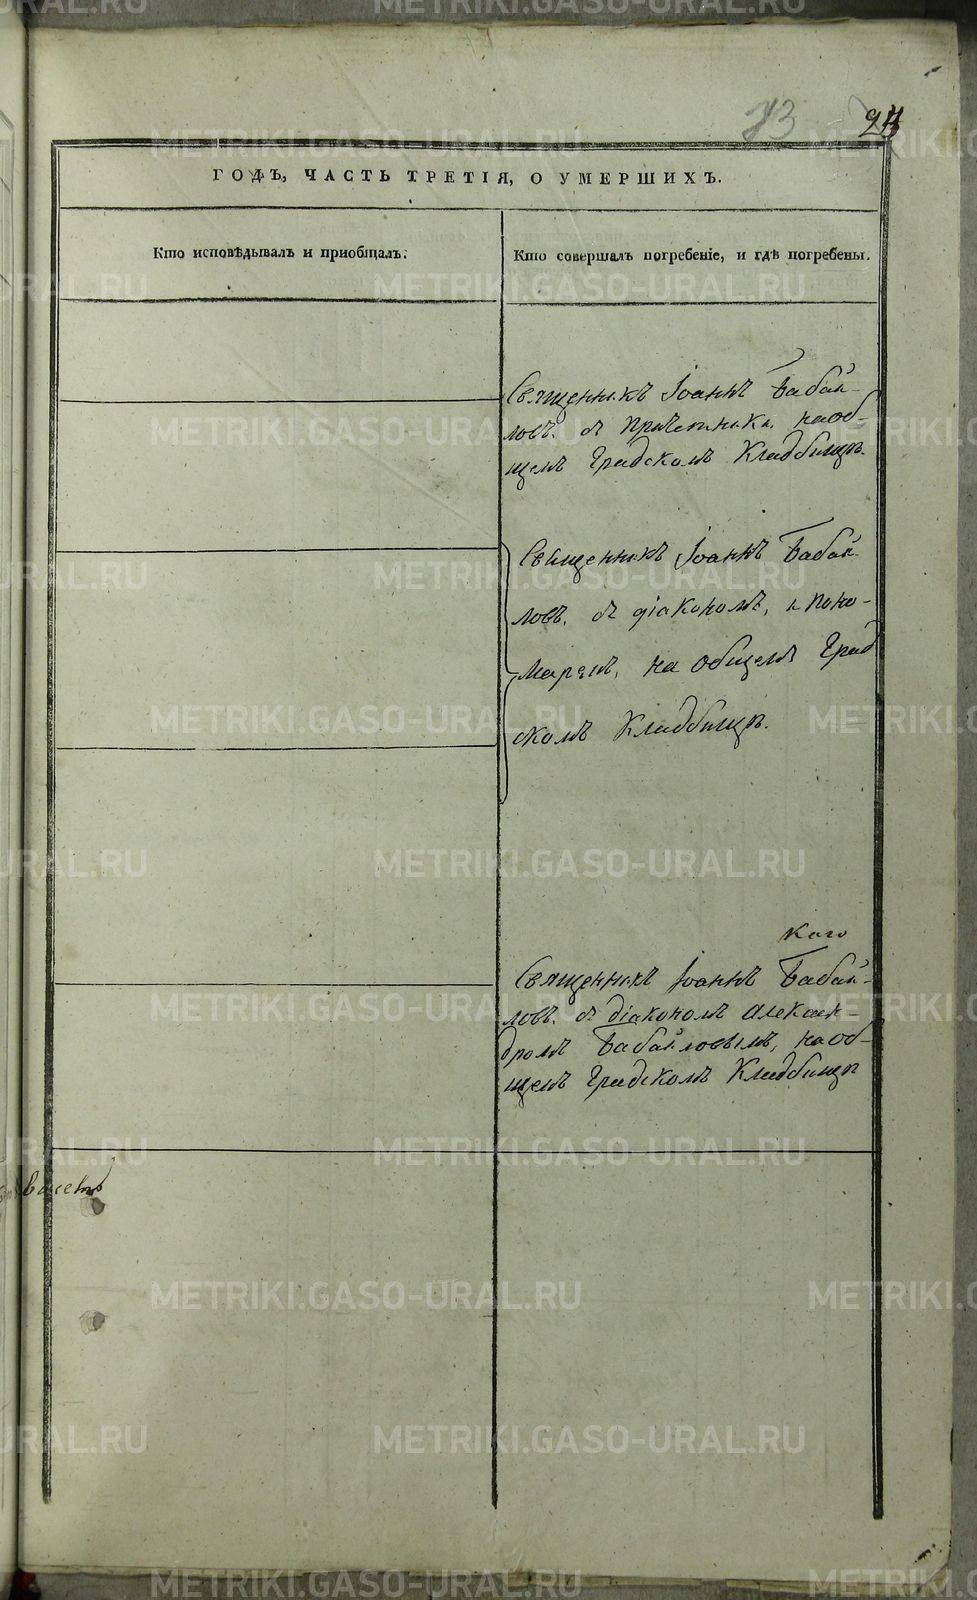 73
ГОДЪ, ЧАСТЬ ТРЕТІЯ, О УМЕРШИХЪ.
Кто исповѣдывалъ и пріобщалъ.
Кто совершалъ погребеніе, и гдѣ погребены.
Священникъ Іоаннъ Бабай-
ловъ. съ причетники. на об-
щемъ Градскомъ Кладбищѣ.
Священникъ Іоаннъ Бабай
ловъ. съ діакономъ, и поно-
маремъ, на общемъ Град
скомъ Кладбищѣ.
Священникъ Іоаннъ Бабай-
ловъ. съ діакономъ Алексан-
дромъ Бабайловымъ, на об-
щемъ Градскомъ Кладбищѣ
METRIKI.GASO-URAL.RU